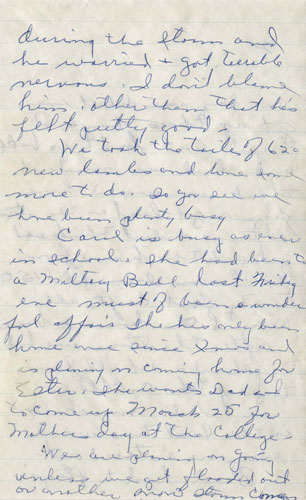 during the storm and
he worried + got terrible
nervous. I don't blame
him. other then that he's
felt pretty good.
We took the tails of 620
new lambs and have some
more to do. so you see we
have been plenty busy
Carol is busy as ever
in school. she had been to
a Military Ball last Friday
eve must of been a wonder
ful affair she has only been
home once since Xmas and
is planing on coming home for
Ester. she wants Dad and I
to come up March 25 for
Mothers day at the College.
We are planing on going
unless we get flooded out
or another snow storm comes